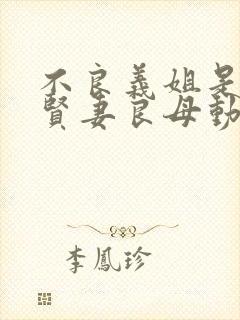 不良義姐是
賢妻良母動
李鳳珍